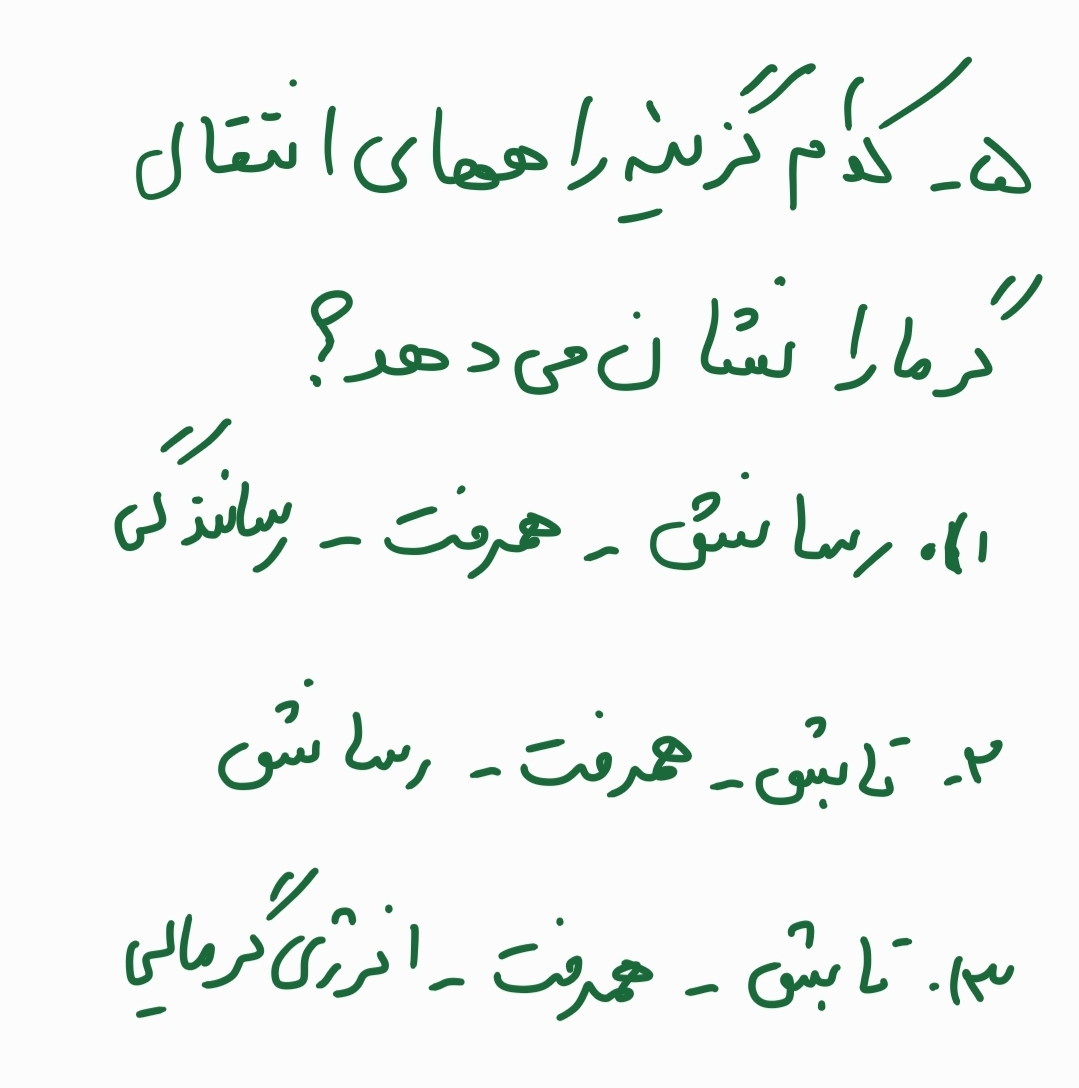 ۵- کدام گزینه راههای انتقال
گرما را نشان می دهد؟
۱). رسانش - همرفت - رسانندگی
۲- تابش - همرفت - رسانش
۳). تابش - همرفت - انرژی گرمایی